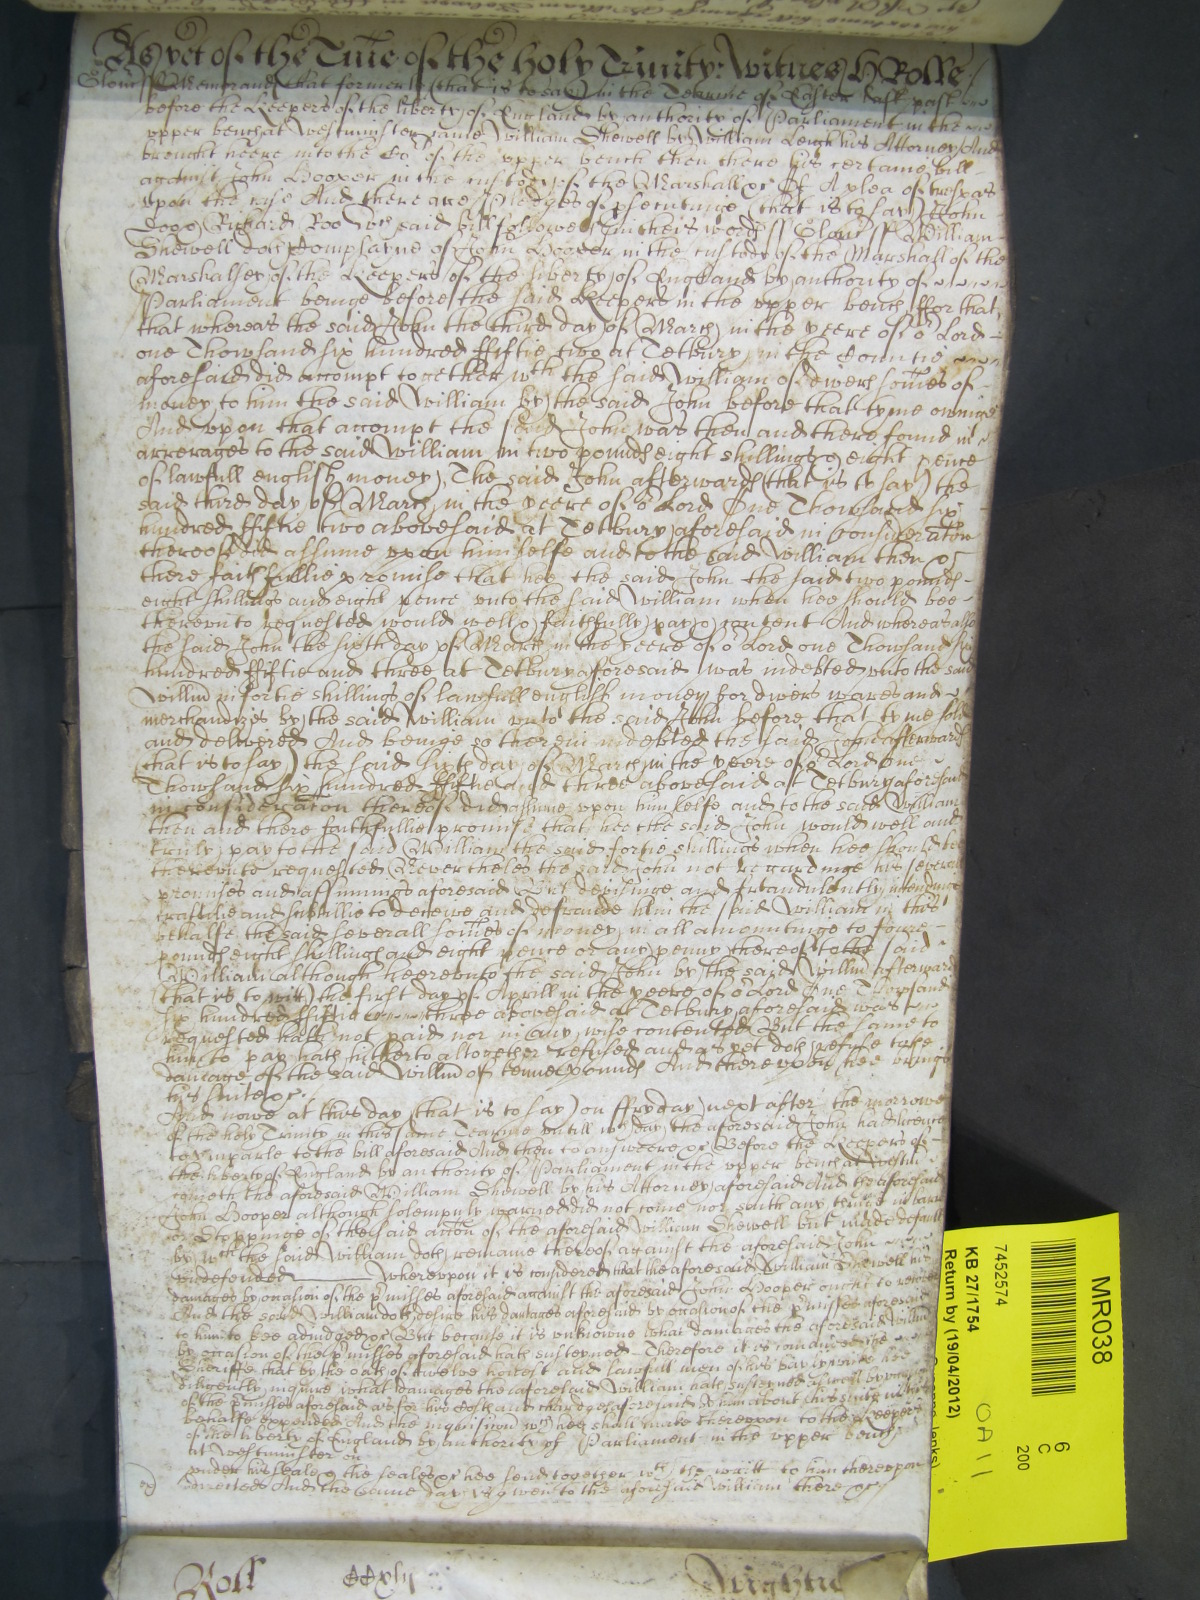 As yet of the Tme of the holy Trinity: Witnes H Rolle
Glouc ss Memorand that formerly (that is to say) in the Tearme of Easter last past
before the Keepers of the liberty of England by authority of Parliament in the
vpper bench at Westminster came William Shewell by William Leigh his Attorney And
brought heere into the Cot of the vpper bench then there his certaine bill
against John Hooper in the custody of the Marshall &c Of A plea of trespas
vpon the case And there are Pledges of psecutinge (that is to say) John
Doo & Richard Roo wch said bill followeth in theis words ss Glouc ss William
Shewell doth Complayne of John Hooper in the custody of the Marshall of the
Marshalsey of the Keepers of the liberty of England by authority of
Parliament beinge before the said Keepers in the vpper bench ffor that
that whereas the said John the third day of March in the yeere of or Lord
one Thowsand six hundred ffiftie two at Tetbury in the Countie
aforesaid did accompt together wth the said William of divers somes of
money to him the said William by the said John before that tyme owinge
And vpon that accompt the said John was then and there found in
arrerages to the said William in two pounds eight shillings & eight pence
of lawfull english money, The said John afterwards (that is to say) the
said third day of March in the yeere of or Lord One Thowsand six
hundred ffiftie two abovesaid at Tetbury aforesaid in consideraton
thereof did assume vpon himselfe and to the said William then &
there faithfullie promise that hee the said John the said two pounds
eight shillings and eight pence vnto the said William when hee should bee
therevnto requested would well & faithfully pay & content And whereas also
the said John the sixth day of March in the yeere of or Lord one Thowsand six
hundred ffiftie and three at Tetbury aforesaid was indebted vnto the said
Willm in fortie shillings of lawfull english money for divers wares and
merchandizes by the said William vnto the said John before that tyme sold
and delivered And beinge so therein indebted the said John afterwards
(that is to say) the said sixth day of March in the yeere of or Lord one
Thowsand six hundred ffiftie and three abovesaid at Tetbury aforesaid
in consideraton thereof did assume vpon himselfe and to the said William
then and there faithfullie promise that hee the said John would well and
truly pay to the said William the said fortie shillings when hee should bee
therevnto requested Nevertheles the said John not regardinge his severall
promises and assumings aforesaid But devisinge and fraudulently intendinge
craftilie and subtillie to deceive and defraude him the said William in this
behalfe the said severall somes of money in all amountinge to foure
pounds eight shillings and eight pence or any penny thereof to the said
William although herevnto the said John by the said Willm afterwards
(that is to witt) the first day of Aprill in the yeere of or Lord One Thowsand
six hundred ffiftie three abovesaid at Tetbury aforesaid was
requested hath not paid nor in any wise contented But the same to
him to pay hath hitherto altogether refused and as yet doth refuse to the
damage of the said Willm of tenne pounds And therevpon hee brings
his suite &c.
And nowe at this day (that is to say) on ffryday next after the morrowe
of the holy Trinity in this same Tearme vntill wch day the aforesaid John had licence
to imparle to the bill aforesaid And then to answeere &c Before the Keepers of
the liberty of England by authority of Parliament in the vpper bench at Westm
cometh the aforesaid William Shewell by his Attorney aforesaid And the aforesaid
John Hooper although solempnly warned did not come nor saith any thinge in barre
or Stoppinge of the said acton of the aforesaid William Shewell but made default
by wch the said William doth remaine thereof against the aforesaid John
vndefended Wherevpon it is considered that the aforesaid William Shewell his
damages by occasion of the pmisses aforesaid against the aforesaid John Hooper ought to recover
And the said William doth desire his damages aforesaid by occasion of the pmisses aforesaid
to him to bee adiudged &c But because it is vnknowne what damages the aforesaid Willm
by occasion of the pmisses aforesaid hath susteyned Therefore it is comanded the
Sheriffe that by the oath of twelve honest and lawfull men of his bayliwicke hee
diligently inquire what damages the aforesaid William hath susteyned aswell by occasion
of the pmisses aforesaid as for his Costs and charges aforesaid by him about his suite in this
behalfe expended And the inquisicon wch hee shall make therevpon to the Keepers
of the liberty of England by authority of Parliament in the vpper bench
at Westminster on
vnder his seale & the seales &c hee send together wth the writt to him therevpon
directed And the same day is given to the aforesaid William there &c
Roll CCxlij
MR038
6
C
200
7452574
KB 27/1754
Return by (19/04/2012)
OA11